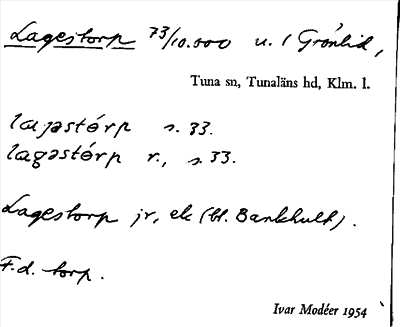 Lagestorp 73/10.000 u. / Grönlid,
Tuna sn, Tunaläns hd, Klm. l.
lajəstórp s. 33.
lagəstórp r., s 33.
Lagestorp jr, ek (bl. Bankhult).
F.d. torp.
Ivar Modéer 1954